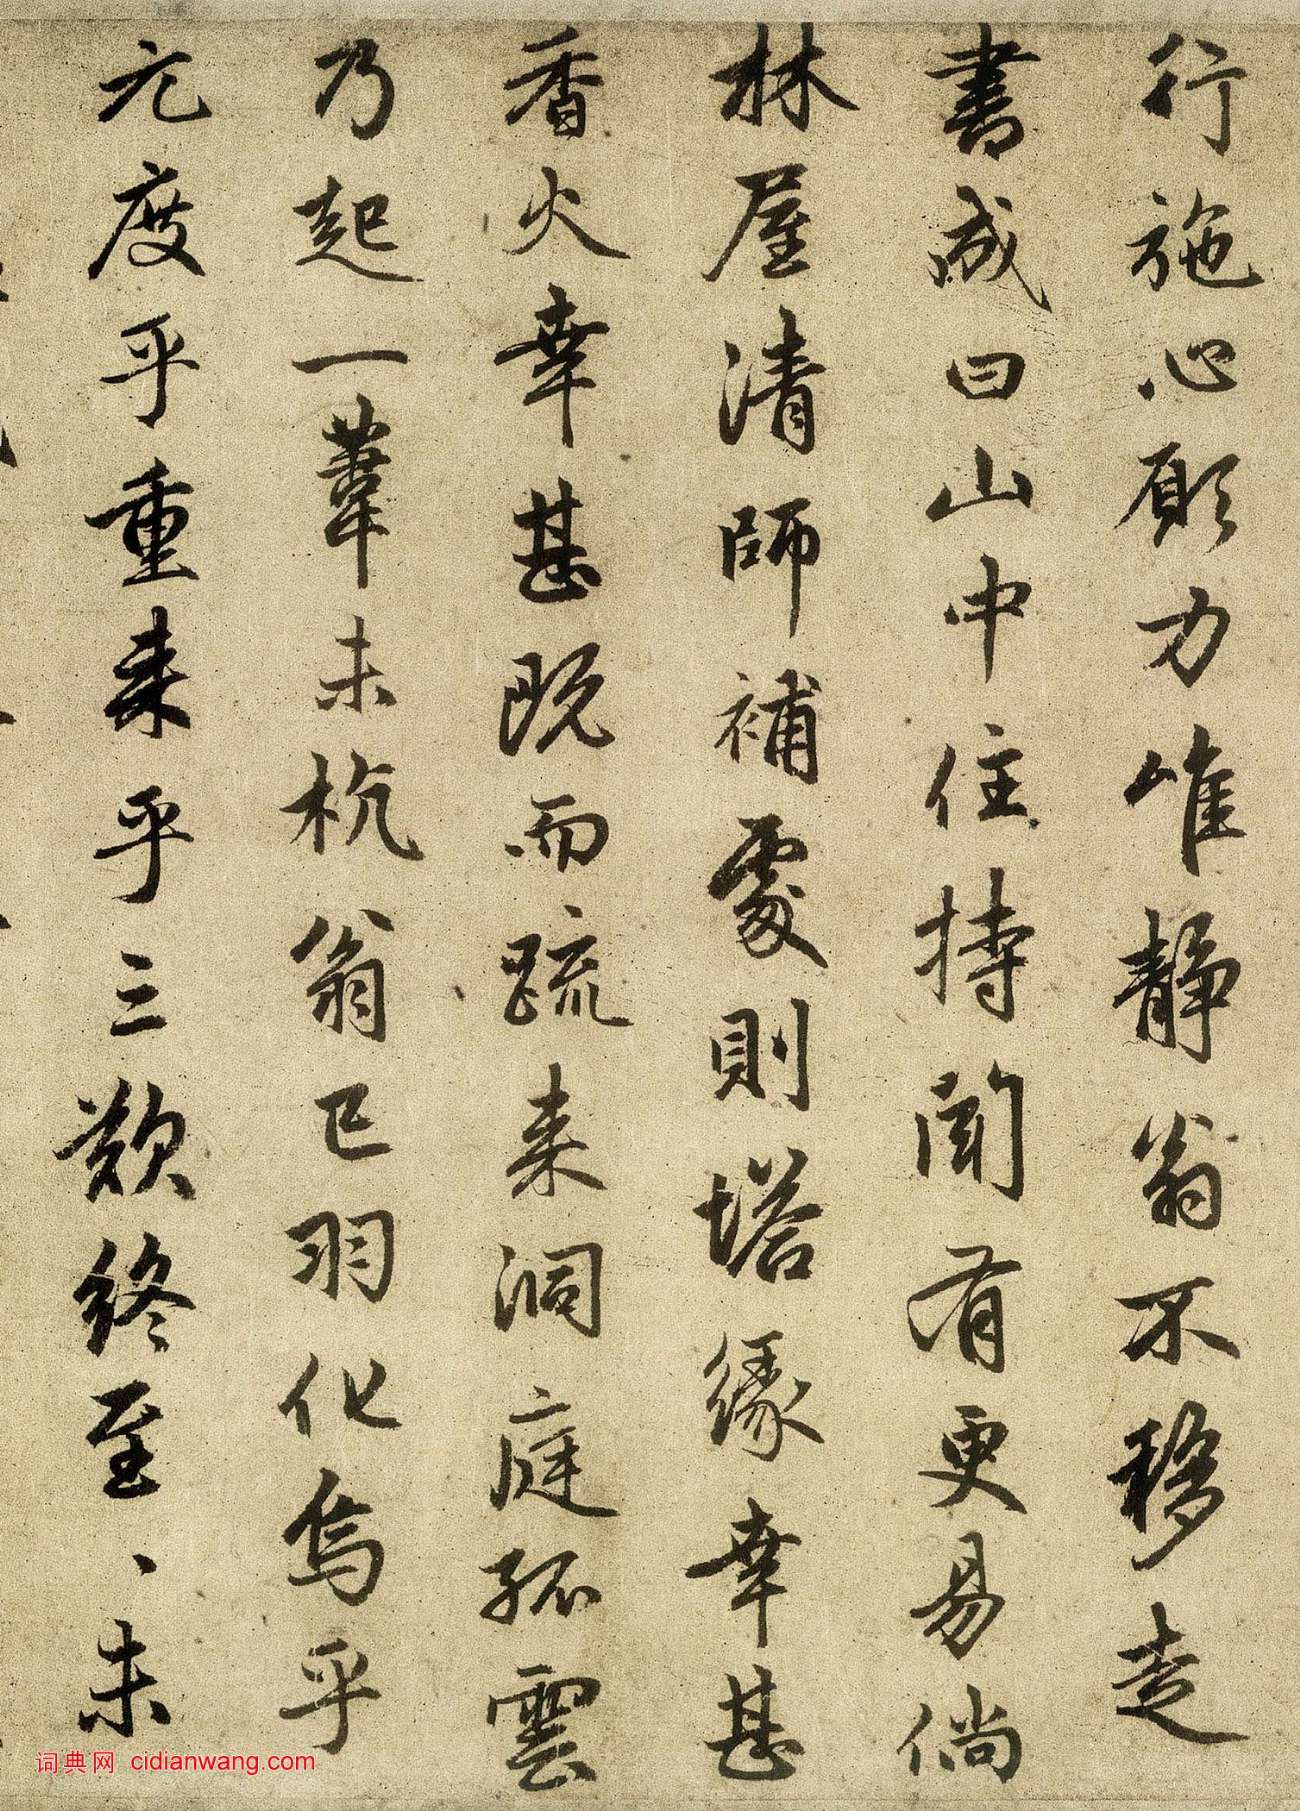 行施心願力唯靜翁不移走
書咸曰山中住持闻有更易倘
林屋清師補處則塔緣幸甚
香火幸甚既而疏来洞庭孤雲
乃起一葦未杭翁已羽化烏乎
元度乎重来乎三歎終至、未
词典网 cidianwang.com